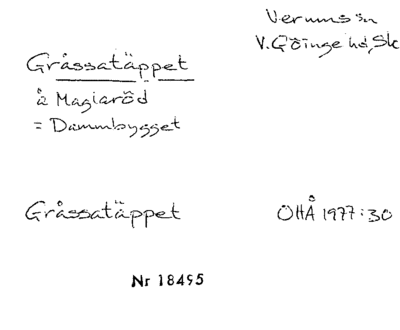 Verums sn
V. Göinge hd, Sk
Gråssatäppet
å Maglaröd
= Dammbygget
Gråssatäppet
OHÅ 1977:30
Nr 18495